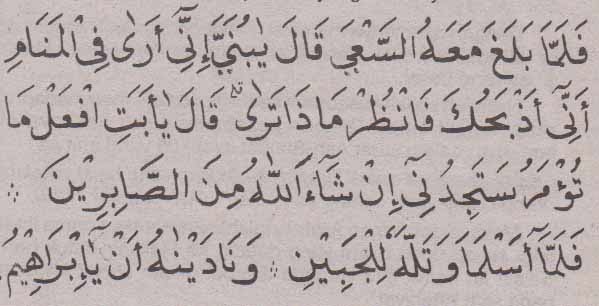 فَلَمَّا بَلَغَ مَعَهُ السَّعْيَ قَالَ يٰبُنَيَّ إِنِّىٓ أَرٰى فِى الْمَنَامِ
أَنِّىٓ أَذْبَحُكَ فَانْظُرْ مَاذَا تَرٰى ۗ قَالَ يٰأَبَتِ افْعَلْ مَا
تُؤْمَرُ سَتَجِدُنِىٓ إِنْ شَآءَ اللّٰهُ مِنَ الصَّابِرِيْنَ ∴
فَلَمَّآ أَسْلَمَا وَتَلَّهٗ لِلْجَبِيْنِ ∴ وَنَادَيْنٰهُ أَنْ يّٰإِبْرَاهِيْمُ